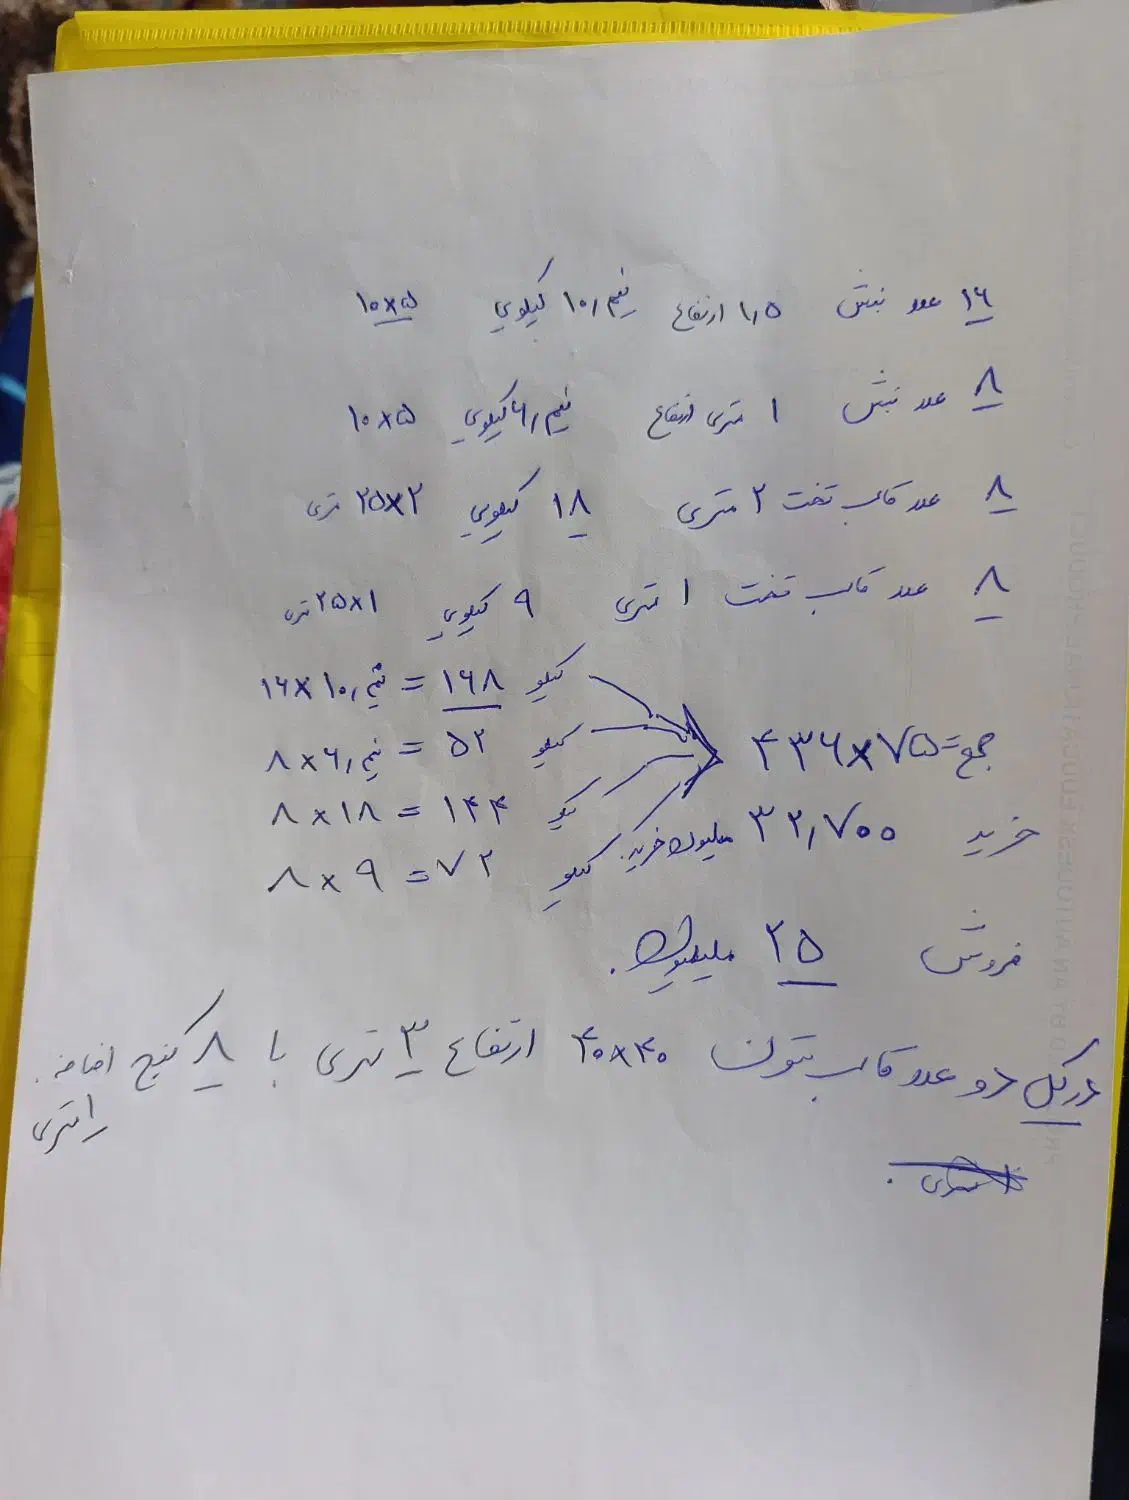 ۱۶ عدد نبش ۱٫۵ ارتفاع ۱۰٫نیم کیلویی ۱۰×۵
۸ عدد نبش ۱ متری ارتفاع ۶٫نیم کیلویی ۱۰×۵
۸ عدد قالب تخت ۲ متری ۱۸ کیلویی ۲۵×۲ متری
۸ عدد قالب تخت ۱ متری ۹ کیلویی ۲۵×۱ متری
۱۶×۱۰٫نیم = ۱۶۸ کیلو
۸×۶٫نیم = ۵۲ کیلو
۸×۱۸ = ۱۴۴ کیلو
۸×۹ = ۷۲ کیلو
جمع= ۴۳۶×۷۵
خرید ۳۲٫۷۰۰ میلیون خرید.
فروش ۲۵ میلیون.
درکل دو عدد قالب بتون ۴۰×۴۰ ارتفاع ۳ متری با ۸ کنج اضافه.
۱ متری